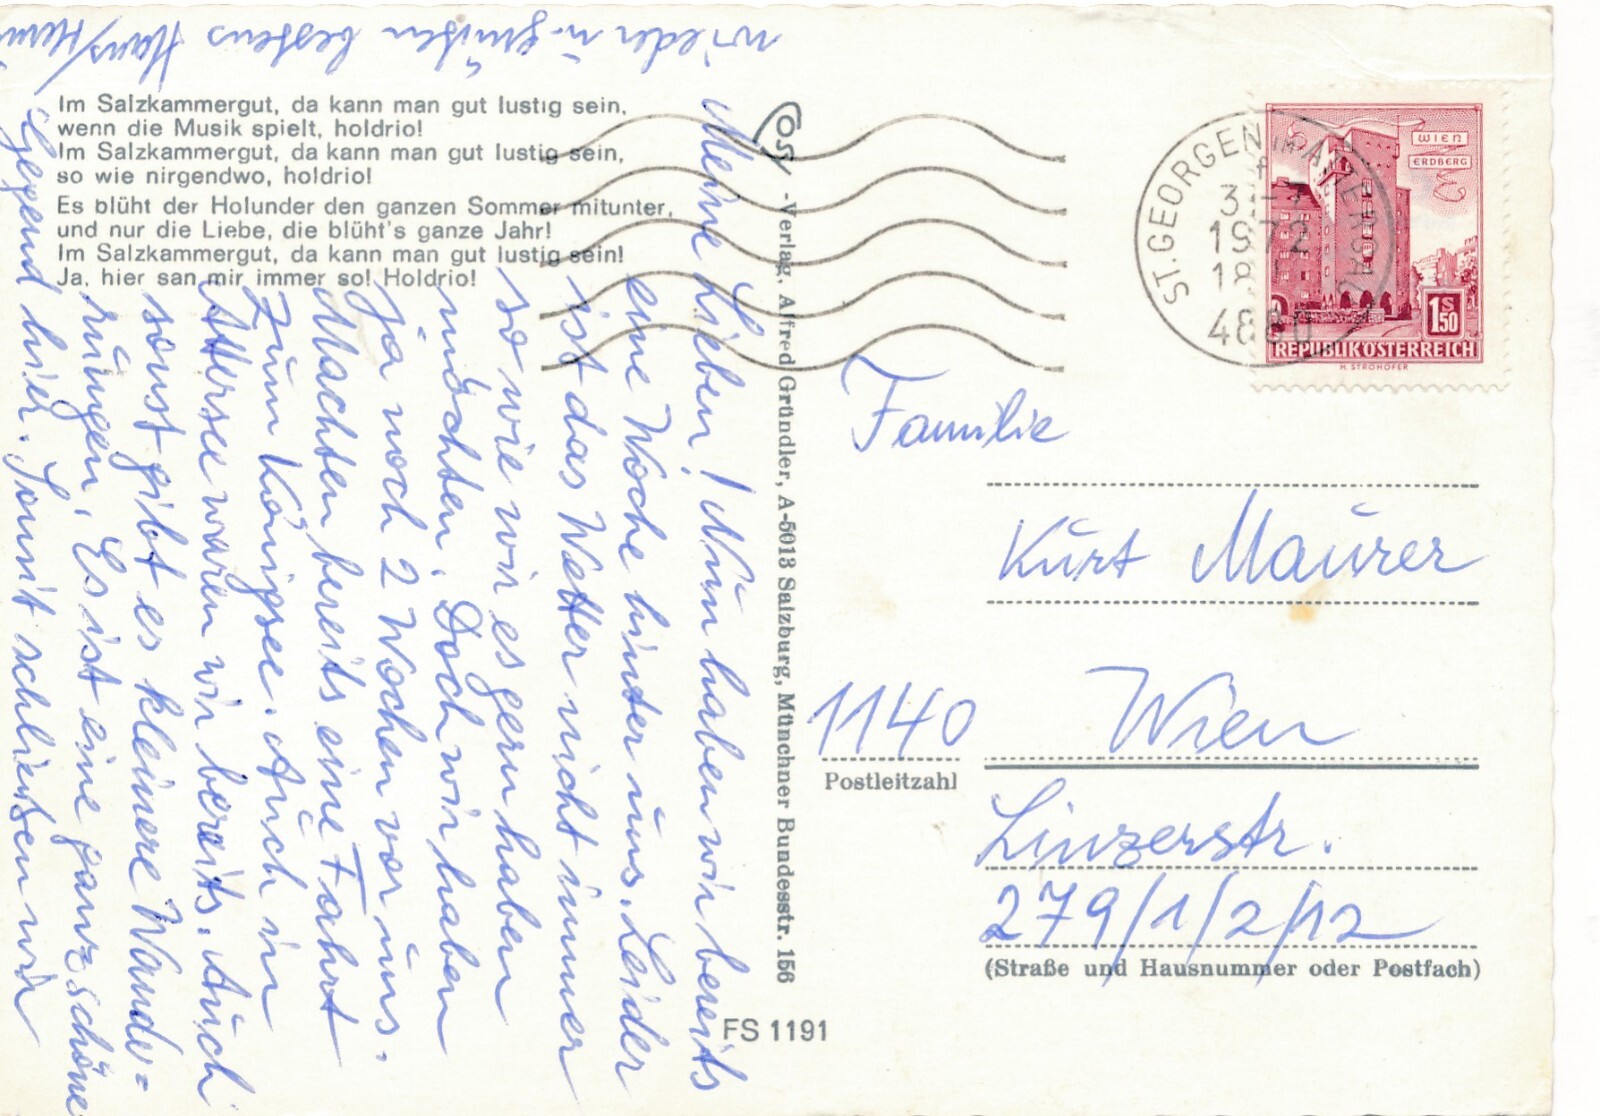 Im Salzkammergut, da kann man gut lustig sein,
wenn die Musik spielt, holdrio!
Im Salzkammergut, da kann man gut lustig sein,
so wie nirgendwo, holdrio!
Es blüht der Holunder den ganzen Sommer mitunter,
und nur die Liebe, die blüht's ganze Jahr!
Im Salzkammergut, da kann man gut lustig sein!
Ja, hier san mir immer so! Holdrio!
Meine Lieben! Nun haben wir bereits
eine Woche hinter uns. Leider
ist das Wetter nicht immer
so wie wir es gern haben
möchten. Doch wir haben
ja noch 2 Wochen vor uns.
Machten bereits eine Fahrt
zum Königsee. Auch in
Attersee waren wir bereits. Auch
sonst gibt es kleinere Wande-
rungen. Es ist eine ganz schöne
Gegend hier. Somit schließen wir
wieder u. grüßen bestens Hans/
Cosy -Verlag, Alfred Gründler, A-5013 Salzburg, Münchner Bundesstr. 156
FS 1191
ST.GEORGEN IM ATTERGAU
1972
18
4880
WIEN
ERDBERG
1 S 50
REPUBLIK ÖSTERREICH
H. STROHOFER
Familie
Kurt Maurer
1140 Wien
Postleitzahl
Linzerstr.
279/1/2/12
(Straße und Hausnummer oder Postfach)